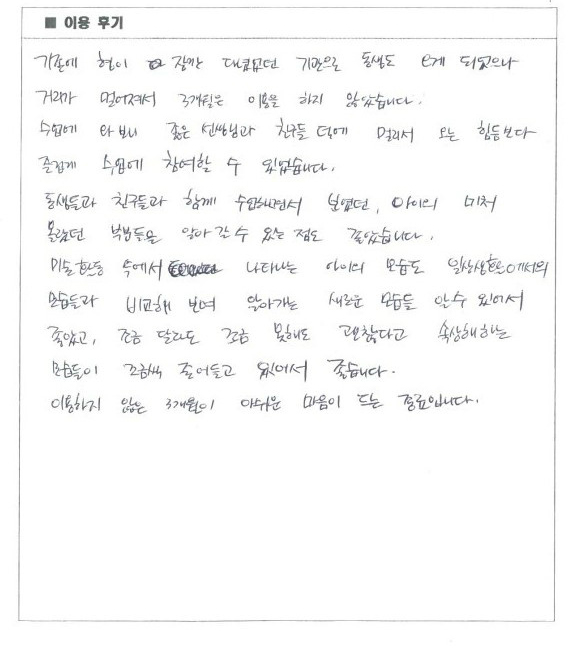 ■ 이용 후기
기존에 형이 잠깐 다녔었던 기관으로 동생도 오게 되었으나
거리가 멀어져서 3개월은 이용을 하지 않았습니다.
수업에 와 보니 좋은 선생님과 친구들 덕에 멀리서 오는 힘듦보다
즐겁게 수업에 참여할 수 있었습니다.
동생들과 친구들과 함께 수업하면서 보였던, 아이의 미처
몰랐던 부분들을 알아 갈 수 있는 점도 좋았습니다.
미술활동 속에서 나타나는 아이의 모습도 일상생활에서의
모습들과 비교해 보며 알아가는 새로운 모습들 알 수 있어서
좋았고, 조금 달라도 조금 못해도 괜찮다고 속상해하는
모습들이 조금씩 줄어들고 있어서 좋습니다.
이용하지 않은 3개월이 아쉬운 마음이 드는 종료입니다.